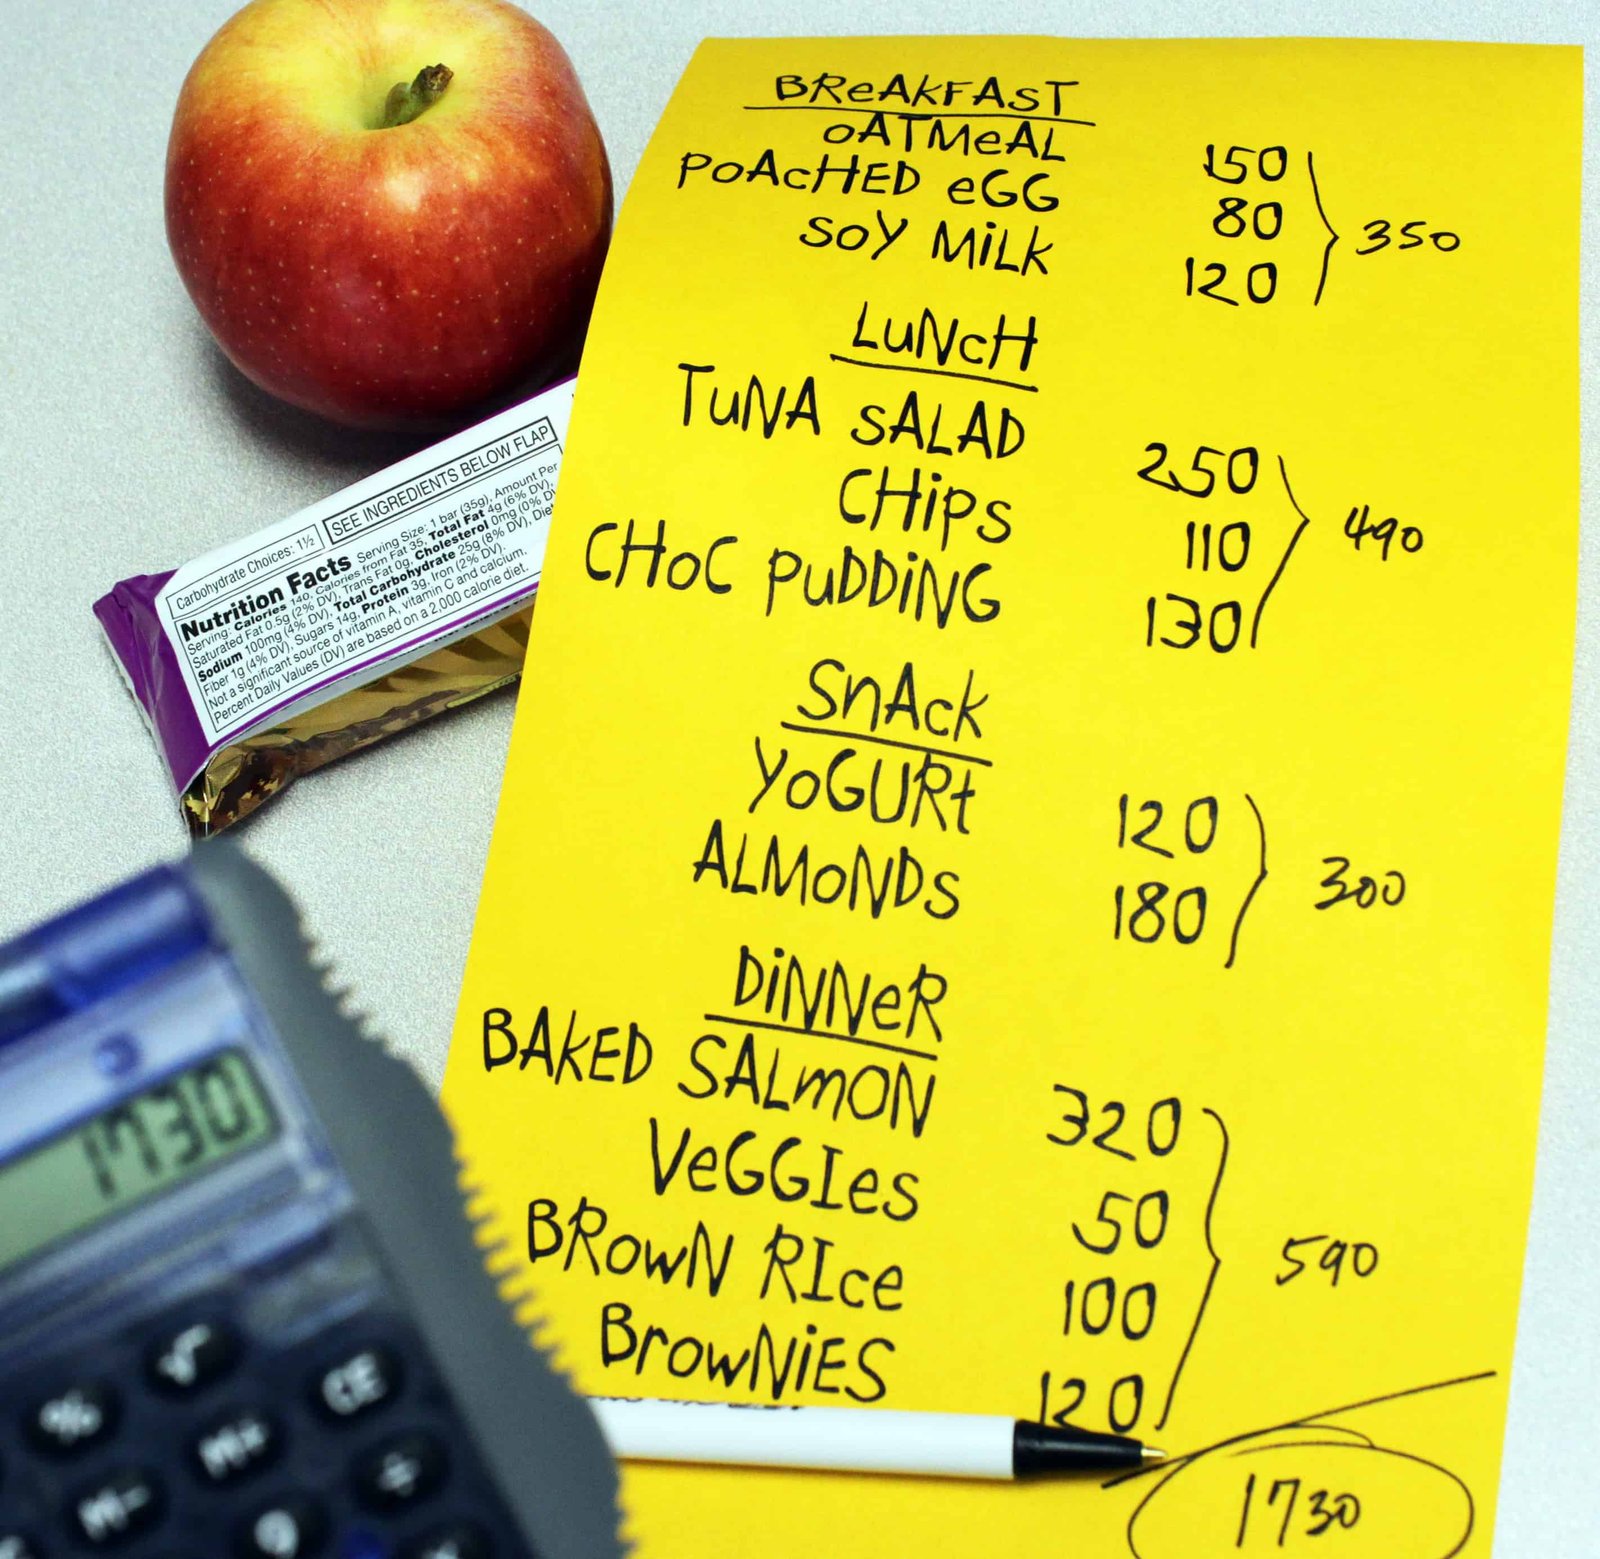 BReAKFAST
oATMeAL 150
PoACHED eGG 80
SoY MiLK 120
350
LuNcH
TuNA SALAD 250
CHiPS 110
CHoC PuDDiNG 130
490
SnAcK
YoGURt 120
ALMoNDS 180
300
DiNNeR
BAKED SALmON 320
VeGGIes 50
BRowN RIce 100
BrowNiES 120
590
1730
Carbohydrate Choices: 1½
SEE INGREDIENTS BELOW FLAP
Nutrition Facts Serving Size: 1 bar (35g), Amount Per
Serving: Calories 140, Calories from Fat 35, Total Fat 4g (6% DV),
Saturated Fat 0.5g (2% DV), Trans Fat 0g, Cholesterol 0mg (0% DV
Sodium 100mg (4% DV), Total Carbohydrate 25g (8% DV), Die
Fiber 1g (4% DV), Sugars 14g, Protein 3g, Iron (2% DV),
Not a significant source of vitamin A, vitamin C and calcium.
Percent Daily Values (DV) are based on a 2,000 calorie diet.
1730
√ CE
% M+ ÷
M- 9